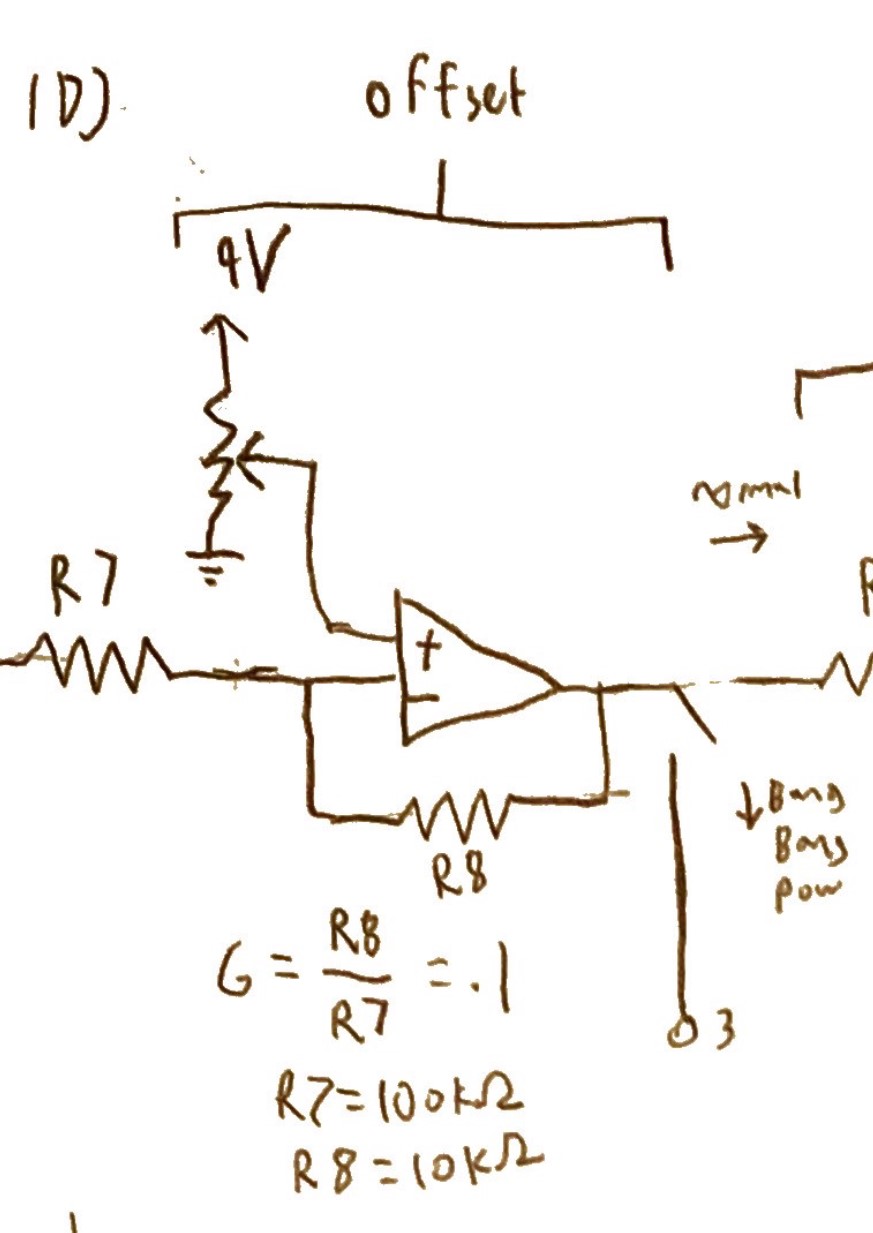 1D)
offset
9V
normal
→
R7
R
+
-
↓ Bang
Bang
pow
R8
G = R8/R7 = .1
3
R7=100kΩ
R8=10kΩ